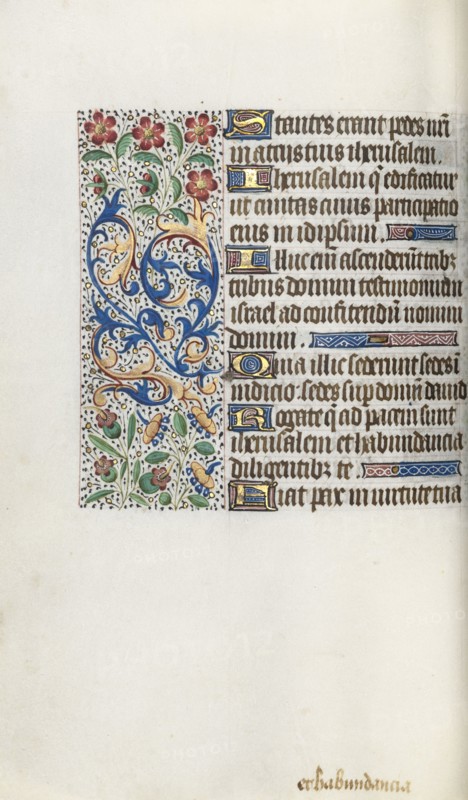 Stantes erant pedes nr̄i
in atriis tuis iherusalem.
Iherusalem q̄ edificatur
ut ciuitas cuius participatio
eius in idipsum.
Illuc em̄ ascenderūt tribꝫ
tribus domini testimonium
israel ad confitendū nomini
domini.
Quia illic sederunt sedes ī
iudicio: sedes sup domū dauid
Rogate q̄ ad pacem sunt
iherusalem et habundancia
diligentibꝫ te.
Fiat pax in uirtute tua
et habundancia